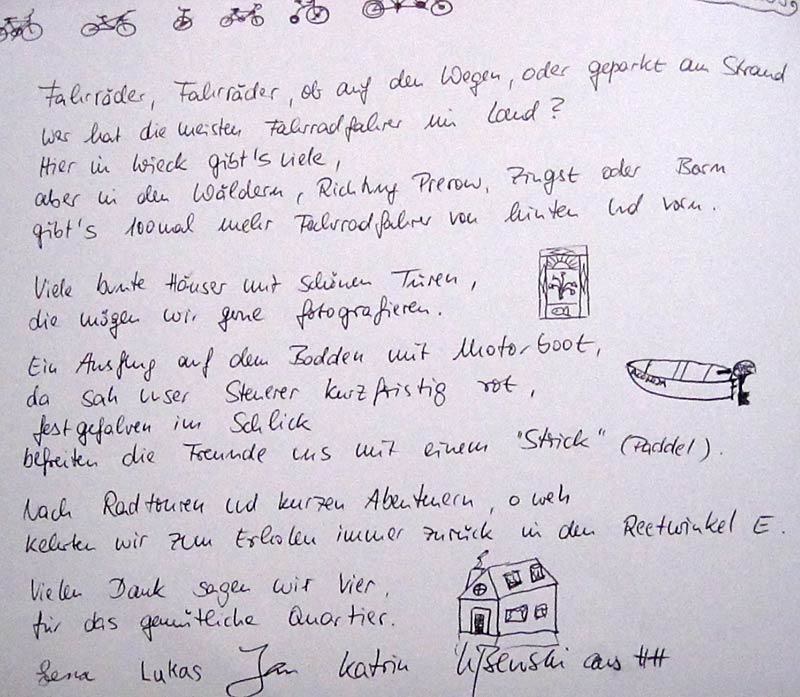 Fahrräder, Fahrräder, ob auf den Wegen, oder geparkt am Strand
wer hat die meisten Fahrradfahrer im Land?
Hier in Wieck gibt's viele,
aber in den Wäldern, Richtung Prerow, Zingst oder Born
gibt's 100mal mehr Fahrradfahrer von hinten und vorn.
Viele bunte Häuser mit schönen Türen,
die mögen wir gerne fotografieren.
Ein Ausflug auf dem Bodden mit Motorboot,
da sah unser Steuerer kurzfristig rot,
festgefahren im Schlick
befreiten die Freunde uns mit einem "Strick" (Paddel).
Nach Radtouren und kurzen Abenteuern, o weh
kehrten wir zum Erholen immer zurück in den Reetwinkel E.
Vielen Dank sagen wir vier,
für das gemütliche Quartier.
Lena Lukas Jan Katrin aus HH